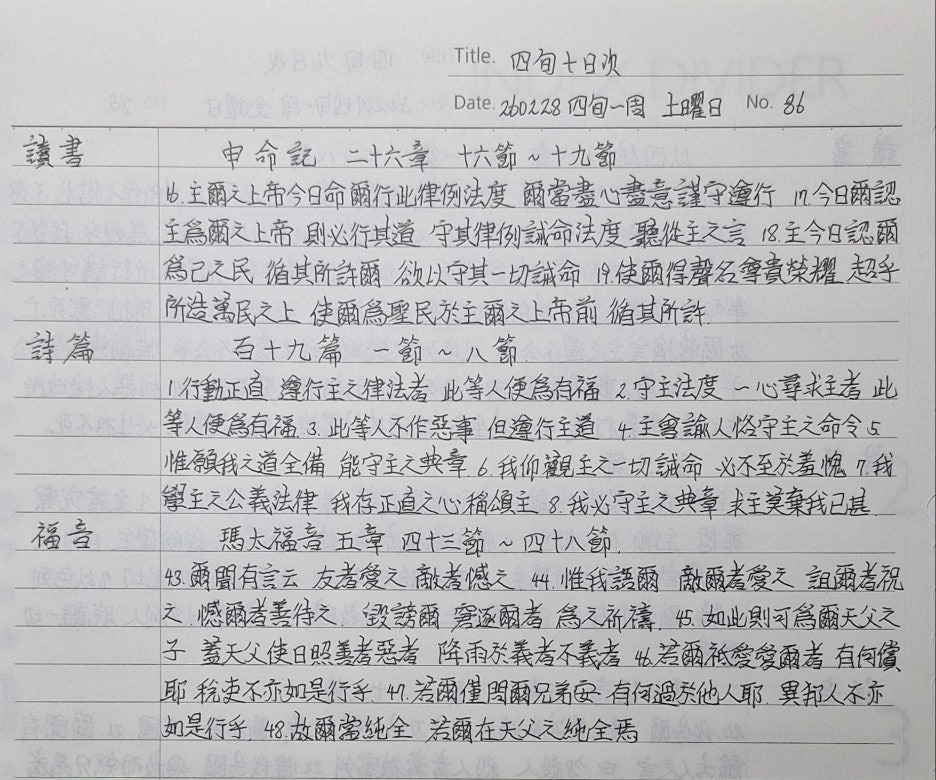 Title. 四旬七日次
Date. 260228 四旬一周 土曜日 No. 86
讀書 申命記 二十六章 十六節~十九節
16.主爾之上帝今日命爾行此律例法度 爾當盡心盡意謹守遵行 17.今日爾認
主爲爾之上帝 則必行其道 守其律例誡命法度 聽從主之言 18.主今日認爾
爲己之民 循其所許爾 欲以守其一切誡命 19.使爾得聲名尊貴榮耀 超乎
所造萬民之上 使爾爲聖民於主爾之上帝前 循其所許.
詩篇 百十九篇 一節~八節
1.行動正直 遵行主之律法者 此等人便爲有福 2.守主法度 一心尋求主者 此
等人便爲有福. 3.此等人不作惡事 但遵行主道 4.主曾諭人恪守主之命令 5.
惟願我之道全備 能守主之典章. 6.我仰觀主之一切誡命 必不至於羞愧 7.我
學主之公義法律 我存正直之心稱頌主 8.我必守主之典章 求主莫棄我已甚.
福音 瑪太福音 五章 四十三節~四十八節.
43.爾聞有言云 友者愛之 敵者憾之 44.惟我語爾 敵爾者愛之 詛爾者祝
之 憾爾者善待之 毀謗爾 窘逐爾者 爲之祈禱. 45.如此則可爲爾天父之
子 蓋天父使日照善者惡者 降雨於義者不義者 46.若爾祇愛愛爾者 有何償
耶 稅吏不亦如是行乎. 47.若爾僅問爾兄弟安 有何過於他人耶. 異邦人不亦
如是行乎. 48.故爾當純全 若爾在天父之純全焉